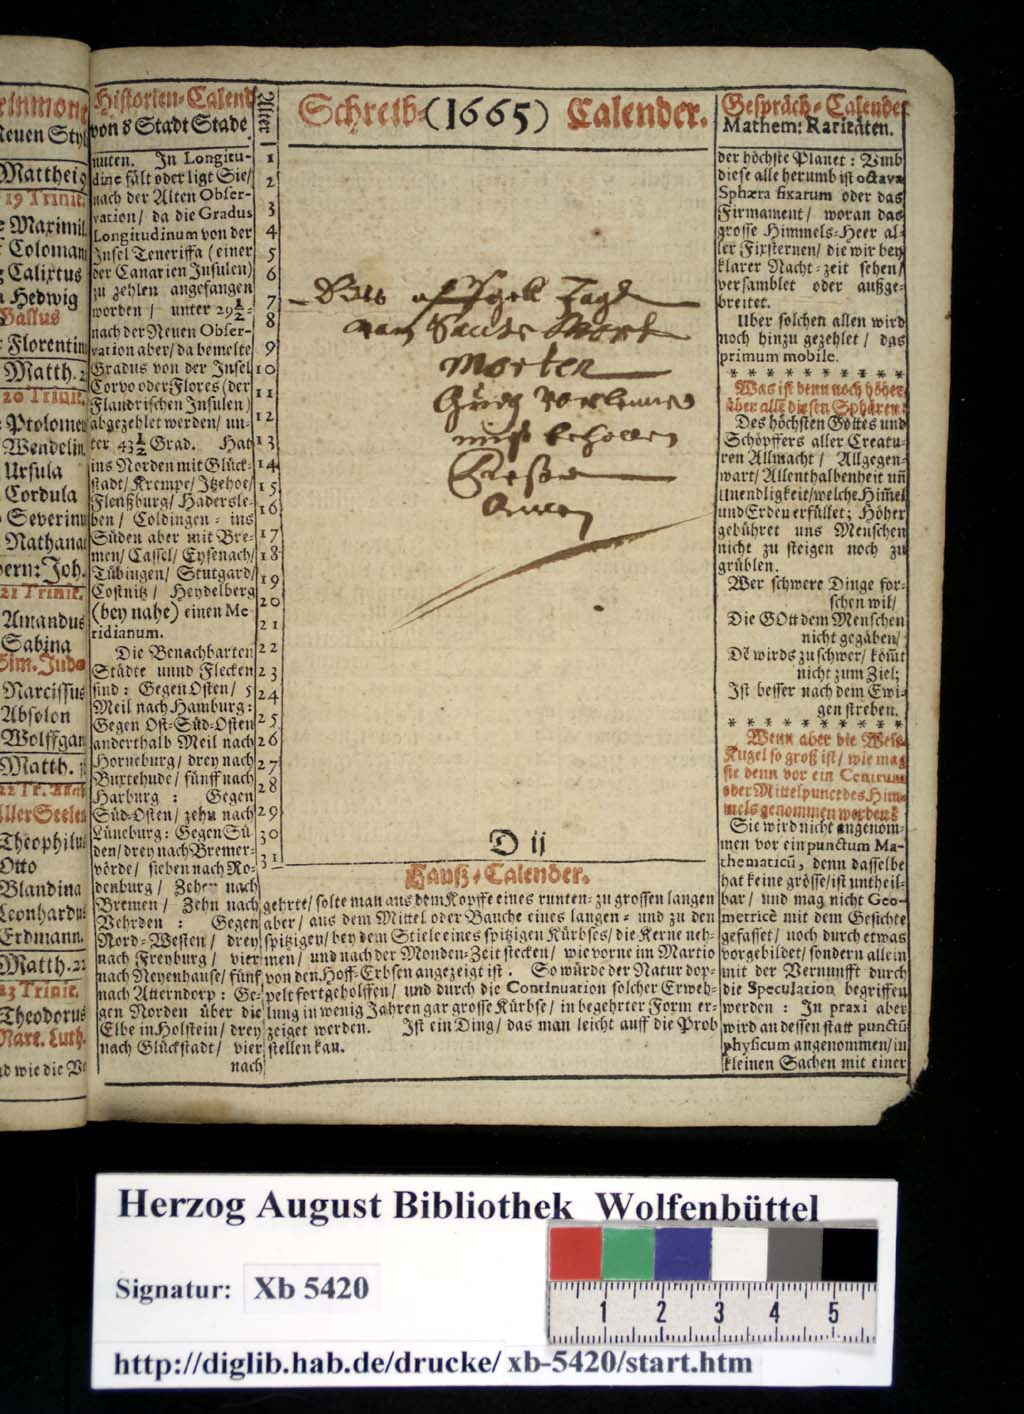 Neuen Styl
Mattheis
19 Trinit.
Maximil
Coloman
Calixtus
Hedwig
Gallus
Florentin
Matth. 2
20 Trinit.
Ptolome
Wendelin
Ursula
Cordula
Severinu
Nathana
21 Trinit.
Amandus
Sabina
Sim. Juda
Narcissus
Absolon
Wolffgan
Matth.
AllerSeelen
Theophilu
Otto
Blandina
Leonhardu
Erdmann.
Matth. 22
23 Trinit.
Theodorus
Mart. Luth.
Historien-Calend
von d Stadt Stade.
nuten. In Longitu-
dine fält oder ligt Sie/
nach der Alten Obser-
vation/ da die Gradus
Longitudinum von der
Insel Teneriffa (einer
der Canarien Insulen)
zu zehlen angefangen
worden/ unter 29½=
nach der Neuen Obser-
vation aber/ da bemelte
Gradus von der Insel
Corvo oder Flores (der
Flandrischen Insulen)
abgezehlet werden/ un-
ter 43½ Grad. Hat
ins Norden mit Glück-
stadt/ Krempe/ Itzehoe/
Flenßburg/ Hadersle-
ben/ Coldingen = ins
Süden aber mit Bre-
men/ Cassel/ Eysenach/
Tübingen/ Stutgard/
Costnitz/ Heydelberg
(bey nahe) einen Me-
ridianum.
Die Benachbarten
Städte unnd Flecken
sind: Gegen Osten/ 5
Meil nach Hamburg:
Gegen Ost-Süd-Osten
anderthalb Meil nach
Horneburg/ drey nach
Buxtehude/ fünff nach
Harburg: Gegen
Süd-Osten/ zehn nach
Lüneburg: Gegen Sü-
den/ drey nach Bremer-
vörde/ sieben nach Ro-
denburg/ Zehen nach
Bremen/ Zehn nach
Vehrden: Gegen
Nord-Westen/ drey
nach Freyburg/ vier
nach Neyenhause/ fünf
nach Atterndorp: Ge-
gen Norden über die
Elbe in Holstein/ drey
nach Glückstadt/ vier
nach
Alter
1
2
3
4
5
6
7
8
9
10
11
12
13
14
15
16
17
18
19
20
21
22
23
24
25
26
27
28
29
30
31
Schreib-(1665) Calender.
Amen
D ij
Hauß-Calender.
gehrte/ solte man aus dem Kopffe eines runten- zu grossen langen
aber/ aus dem Mittel oder Bauche eines langen- und zu den
spitzigen/ bey dem Stiele eines spitzigen Kürbses/ die Kerne neh-
men/ und nach der Monden-Zeit stecken/ wie vorne im Martio
von den Hoff-Erbsen angezeigt ist. So würde der Natur dop-
pelt fortgeholffen/ und durch die Continuation solcher Erweh-
lung in wenig Jahren gar grosse Kürbse/ in begehrter Form er-
zeiget werden. Ist ein Ding/ das man leicht auff die Prob
stellen kan.
Gespräch-Calender
Mathem: Raritäten.
der höchste Planet: Umb
diese alle herumb ist octava
Sphæra fixarum oder das
Firmament/ woran das
grosse Himmels-Heer al-
ler Fixsternen/ die wir bey
klarer Nacht-zeit sehen/
versamblet oder außge-
breitet.
Uber solchen allen wird
noch hinzu gezehlet/ das
primum mobile.
* * * * * * * * * *
Was ist denn noch höher
über alle diesen Sphären?
Des höchsten Gottes und
Schöpffers aller Creatu-
ren Allmacht/ Allgegen-
wart/ Allenthalbenheit uñ
Unendligkeit/ welche Him̃el
und Erden erfüllet; Höher
gebühret uns Menschen
nicht zu steigen noch zu
grüblen.
Wer schwere Dinge for-
schen wil/
Die GOtt dem Menschen
nicht gegäben/
Dẽ wirds zu schwer/ kom̃t
nicht zum Ziel;
Ist besser nach dem Ewi-
gen streben.
* * * * * * * * * *
Wenn aber die Welt-
Kugel so groß ist/ wie mag
sie denn vor ein Centrum
oder Mittelpunct des Him-
mels genommen werden?
Sie wird nicht angenom-
men vor ein punctum Ma-
thematicũ, denn dasselbe
hat keine grösse/ ist untheil-
bar/ und mag nicht Geo-
metricè mit dem Gesichte
gefasset/ noch durch etwas
vorgebildet/ sondern allein
mit der Vernunfft durch
die Speculation begriffen
werden: In praxi aber
wird an dessen statt punctũ
physicum angenommen/ in
kleinen Sachen mit einer
Herzog August Bibliothek Wolfenbüttel
Signatur: Xb 5420
1 2 3 4 5
http://diglib.hab.de/drucke/xb-5420/start.htm